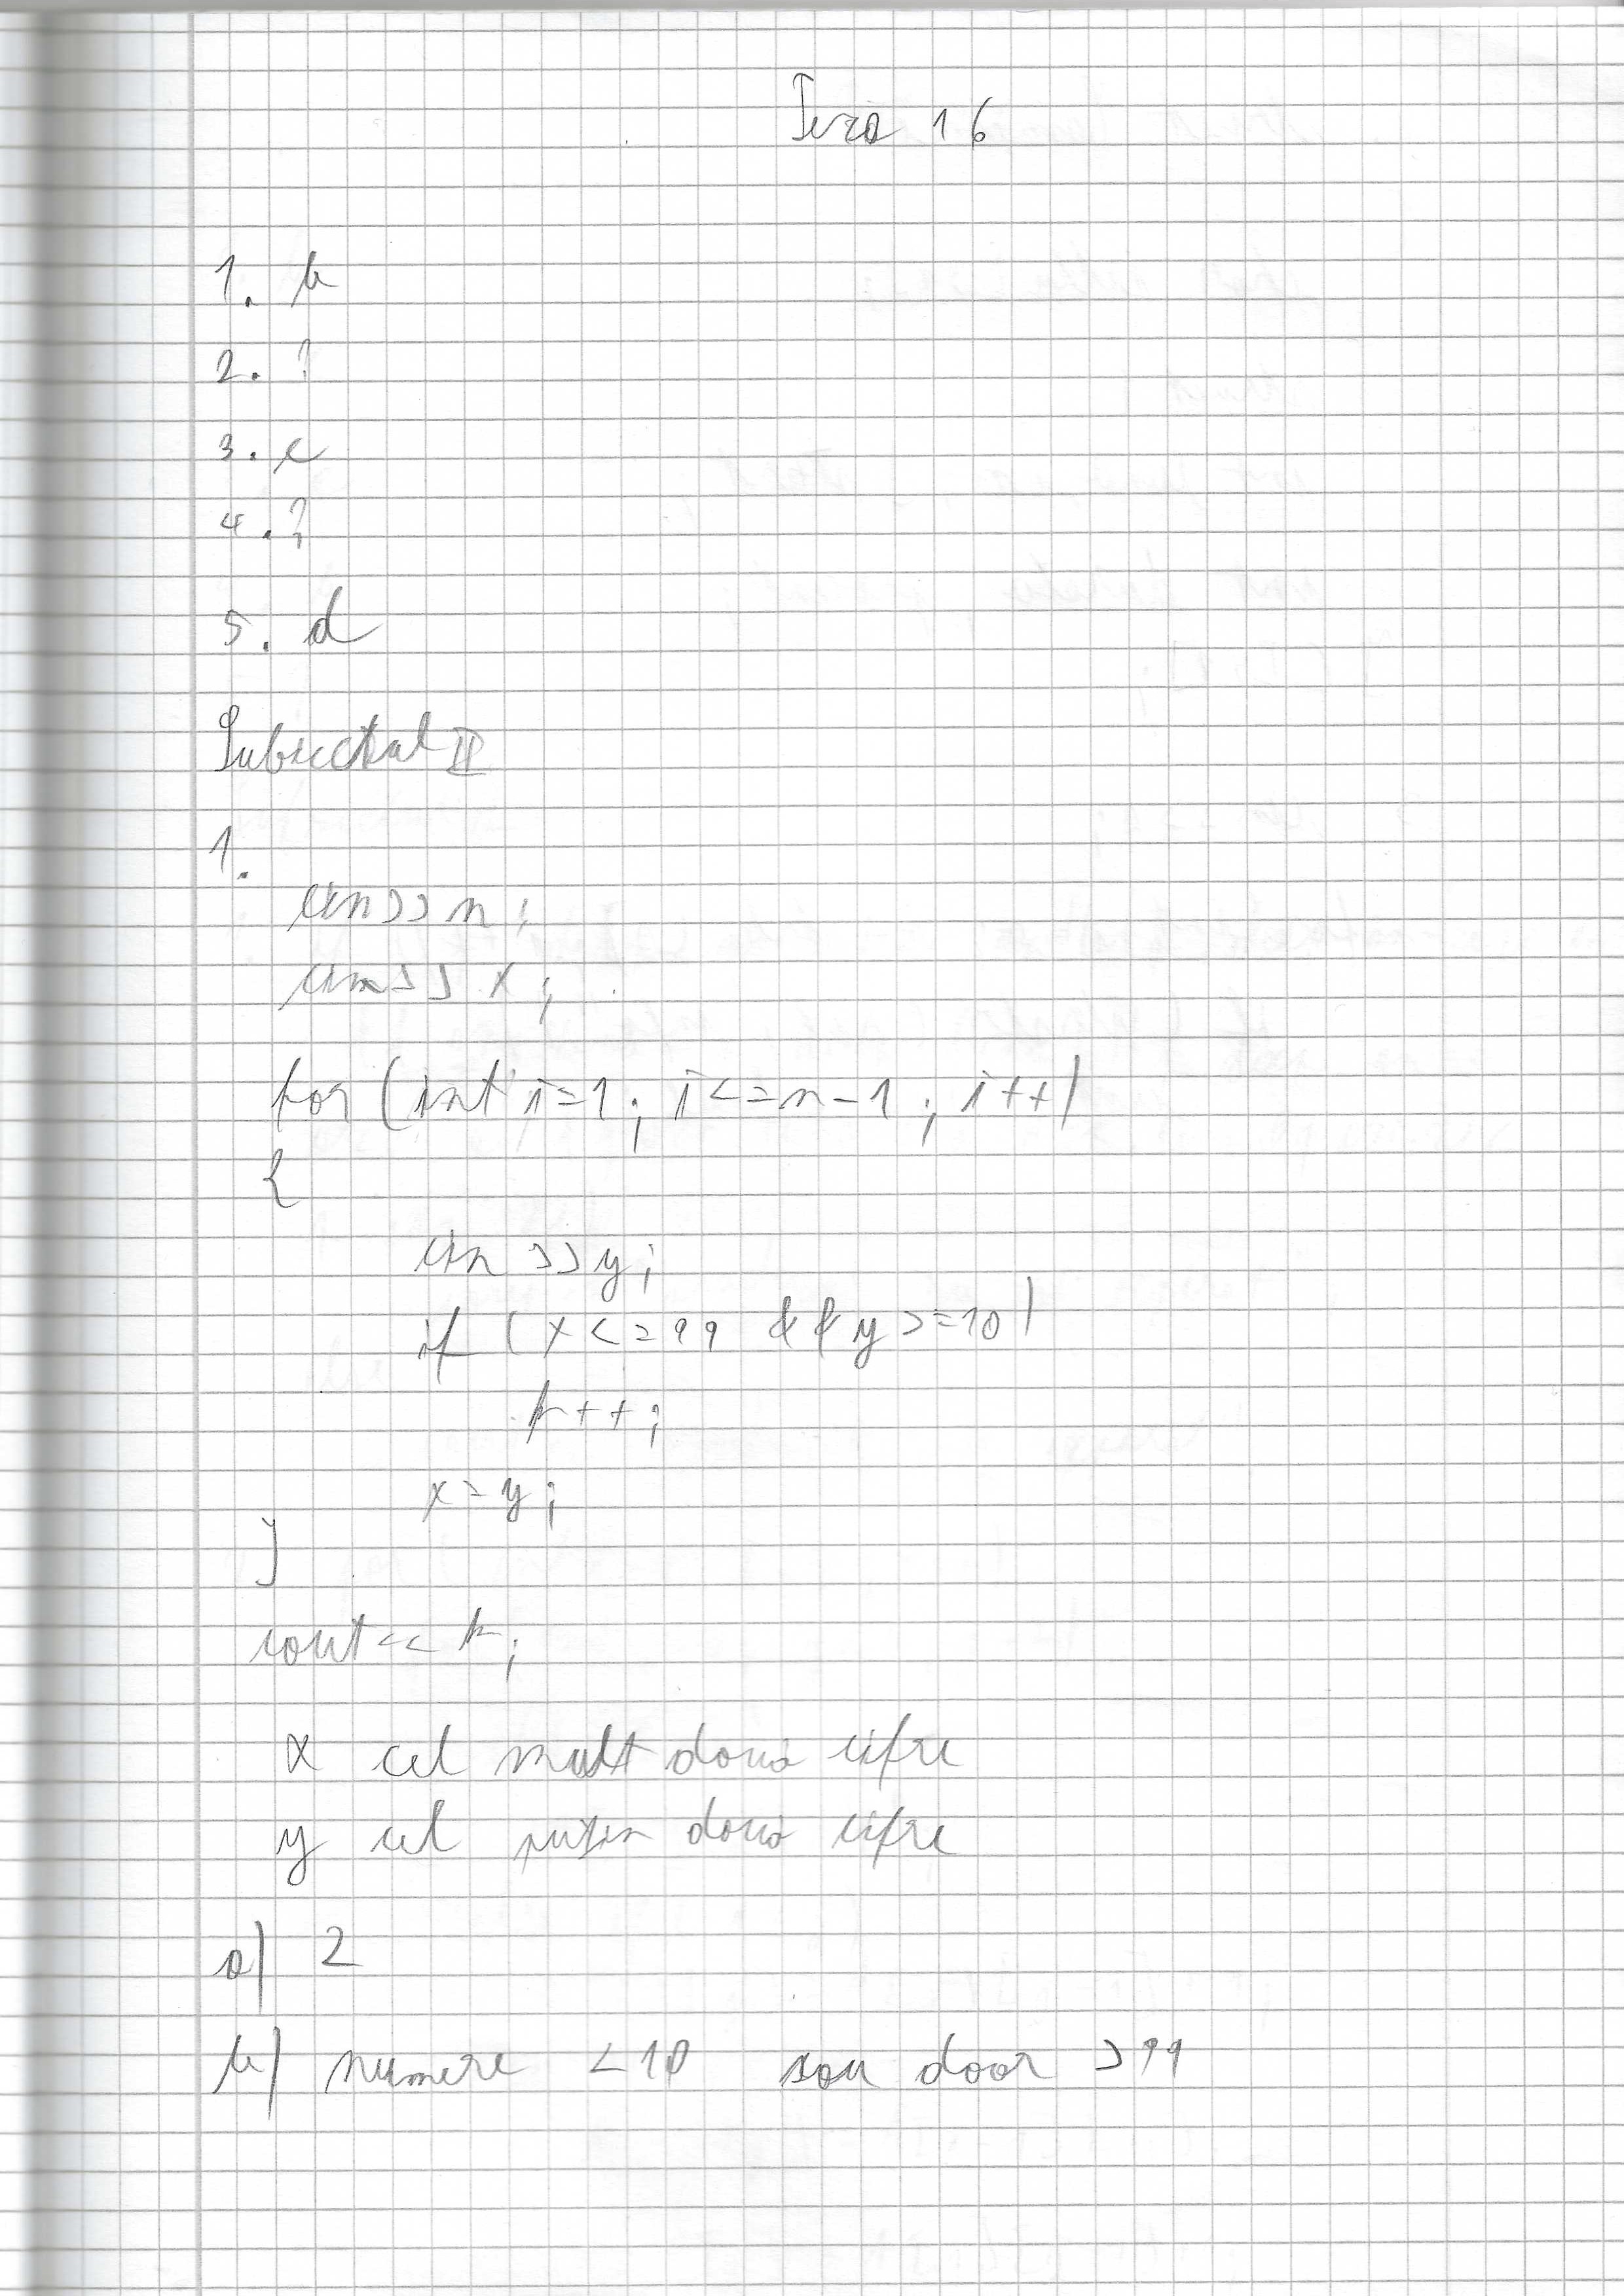 Teza 16
1. b
2. ?
3. c
4. ?
5. d
Subiectul II
1.
cin>>n;
cin>>x;
for (int i=1; i<=n-1; i++)
{
cin >>y;
if (x<=99 && y>=10)
k++;
x=y;
}
cout<< k;
x cel mult două cifre
y cel puțin două cifre
a) 2
b) numere <10 sau doar >99